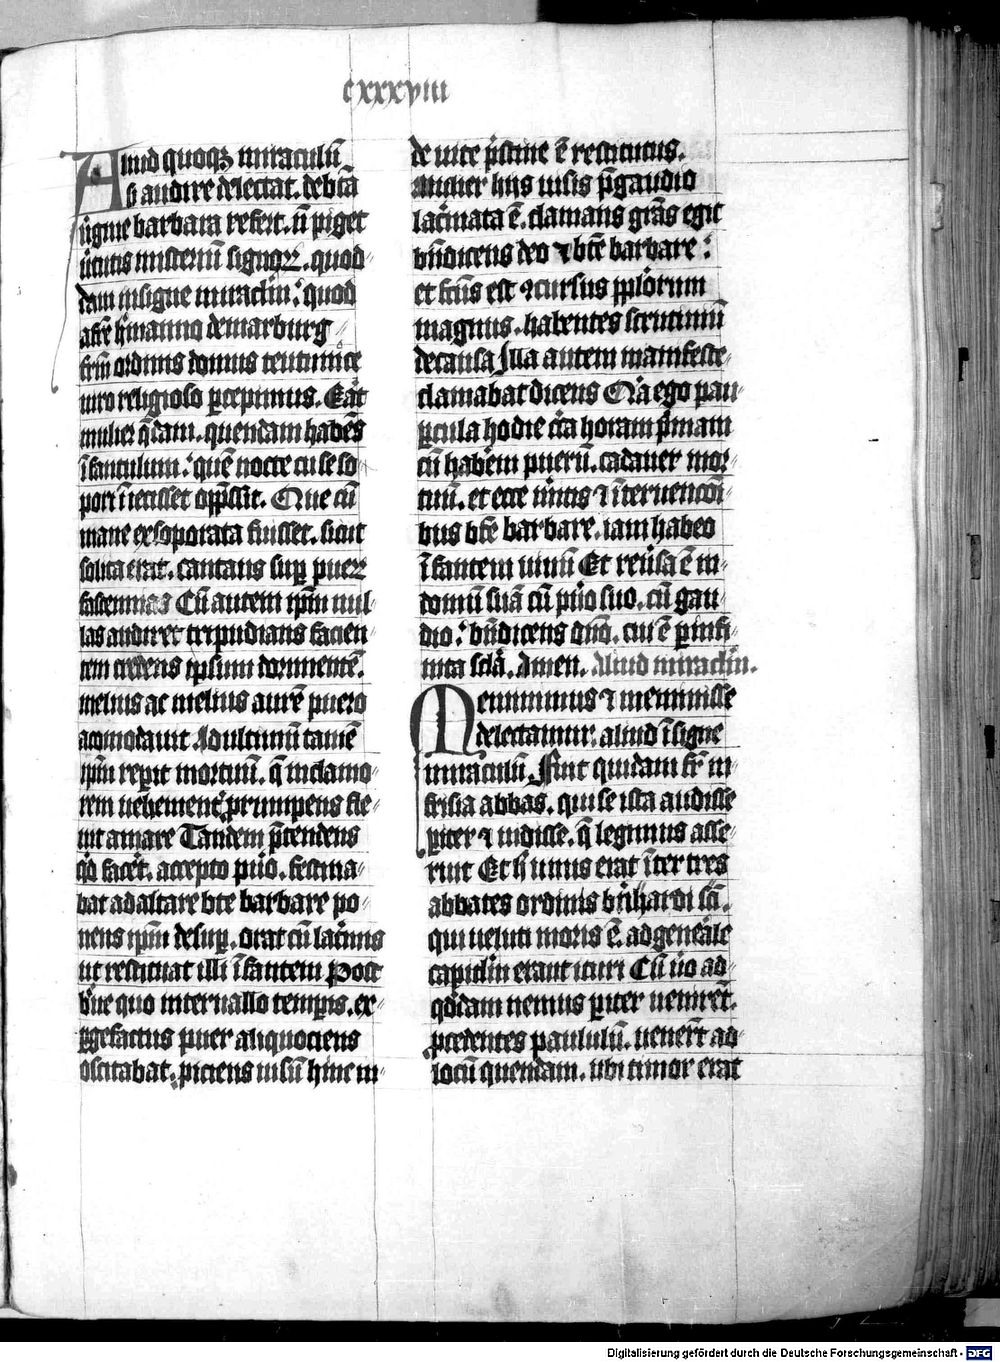 cxxxviii
Aliud quoqz miraculū
si audire delectat. de btā
ũgine barbara refert. nō piget
ũtutis misteriũ signoꝝ. quod-
dam insigne miraclm. quod
a frē hmanno de marburg
frm ordinis domus teutunice
uiro religioso p̱cepimus. Erat
mulier q̄dam. quendam habēs
īfantulum. quē nocte cū se so-
pori īiecisset opp̄ssit. Que cū
mane exsoporata fuisset. sicut
solita erat. cantans sup pueꝝ
fascennias Cū autem ip̄m nul-
las audiret tripudians facien-
tem credens ip̄sum dormientē.
melius ac melius aurē puero
acomodauit Ad ultimū tamē
ip̄m rep̱it mortuū. q̄ in clamo-
rem uehementer prumpens fle-
uit amare Tandem p̄tendens
qd̄ facēt. accepto puo. festina-
bat ad altare bte barbare po-
nens ip̄m desup. orat cū lacimis
ut restituat illi īfantem Post
bue quo interuallo temp̱is. ex-
p̱gefactus puer aliquociens
oscitabat. piciens uisū hinc in-
de uite p̄stine ē restitutus.
Mulier hiis uisis p̄ gaudio
lacimata ē. clamans gr̄as egit
bn̄dicens deo ⁊ bte barbare.
et fcūs est ⁊cursus pplorum
magnus. habentes scrutiniū
de causa Illa autem manifeste
clamabat dicens Quia ego pau-
p̱cula hodie cīta horam p̄mam
cū habem puerū. cadauer mor-
tuū. et ecce m̄itis ⁊ īteruencōi-
bus bte barbare. iam habeo
īfantem uiuū Et reūsa ē in
domū suā cū puo suo. cū gau-
dio. bn̄dicens dn̄o. cui ē p̱ infi-
nita scla. Amen. Aliud miraclm.
Meminimus ⁊ meminisse
delectamur. aliud īsigne
miraculū. Fuit quidam fr̄ in
frisia abbas. qui se ista audisse
p̱iter ⁊ uidisse. q̄ legimus asse-
ruit Et h̄ unus erat īter tres
abbates ordinis bn̄hardi sci.
qui ueluti moris ē. ad gen̄ale
capitlm erant ituri Cū ūo ad
qd̄dam nemus p̱iter uenirēt.
p̱cedentes paululū. uenert̄ ad
locū quendam. ubi timor erat
Digitalisierung gefördert durch die Deutsche Forschungsgemeinschaft - DFG